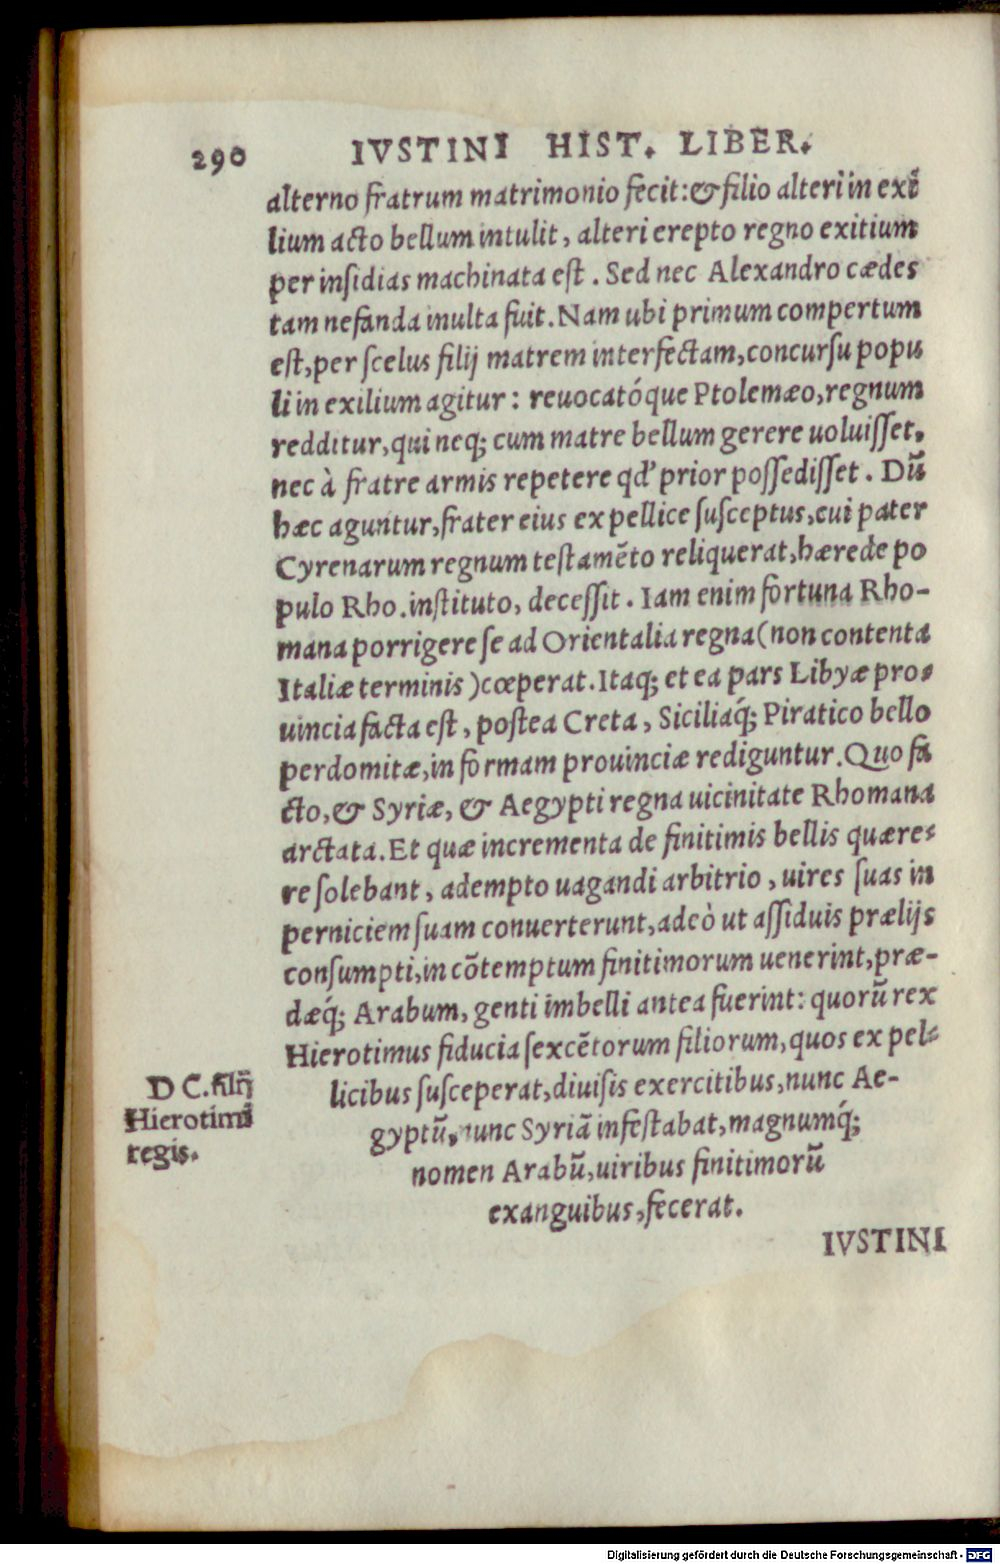 290 IVSTINI HIST. LIBER.
alterno fratrum matrimonio fecit: & filio alteri in exi
lium acto bellum intulit, alteri erepto regno exitium
per insidias machinata est. Sed nec Alexandro cædes
tam nefanda inulta fuit. Nam ubi primum compertum
est, per scelus filij matrem interfectam, concursu popu
li in exilium agitur: reuocatóque Ptolemæo, regnum
redditur, qui neq; cum matre bellum gerere uoluisset,
nec à fratre armis repetere qd' prior possedisset. Dũ
hæc aguntur, frater eius ex pellice susceptus, cui pater
Cyrenarum regnum testamẽto reliquerat, hærede po
pulo Rho. instituto, decessit. Iam enim fortuna Rho-
mana porrigere se ad Orientalia regna (non contenta
Italiæ terminis) cœperat. Itaq; et ea pars Libyæ pro-
uincia facta est, postea Creta, Siciliaq́; Piratico bello
perdomitæ, in formam prouinciæ rediguntur. Quo fa
cto, & Syriæ, & Aegypti regna uicinitate Rhomana
arctata. Et quæ incrementa de finitimis bellis quære-
re solebant, adempto uagandi arbitrio, uires suas in
perniciem suam conuerterunt, adeò ut assiduis prælijs
consumpti, in cõtemptum finitimorum uenerint, præ-
dæq́; Arabum, genti imbelli antea fuerint: quorũ rex
Hierotimus fiducia sexcẽtorum filiorum, quos ex pel-
licibus susceperat, diuisis exercitibus, nunc Ae-
gyptũ, nunc Syriã infestabat, magnumq́;
nomen Arabũ, uiribus finitimorũ
exanguibus, fecerat.
D C. filij
Hierotimi
regis.
IVSTINI
Digitalisierung gefördert durch die Deutsche Forschungsgemeinschaft - DFG